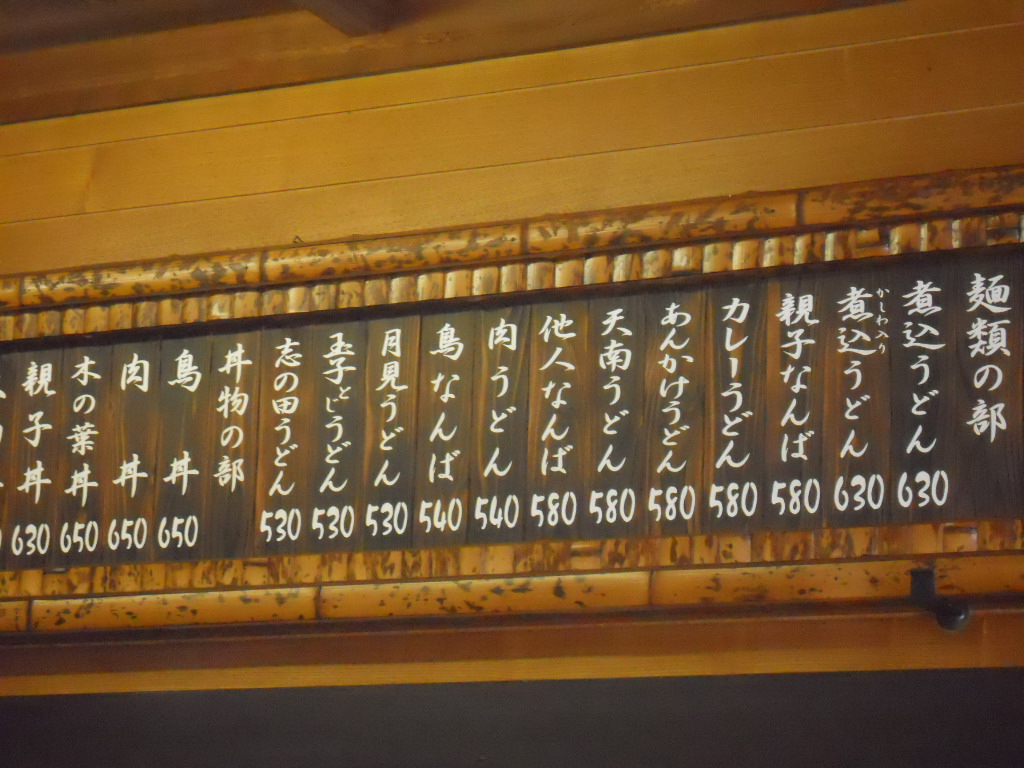 麺類の部
煮込うどん 630
かしわ入り
煮込うどん 630
親子なんば 580
カレーうどん 580
あんかけうどん 580
天南うどん 580
他人なんば 580
肉うどん 540
鳥なんば 540
月見うどん 530
玉子とじうどん 530
志の田うどん 530
丼物の部
鳥丼 650
肉丼 650
木の葉丼 650
親子丼 630